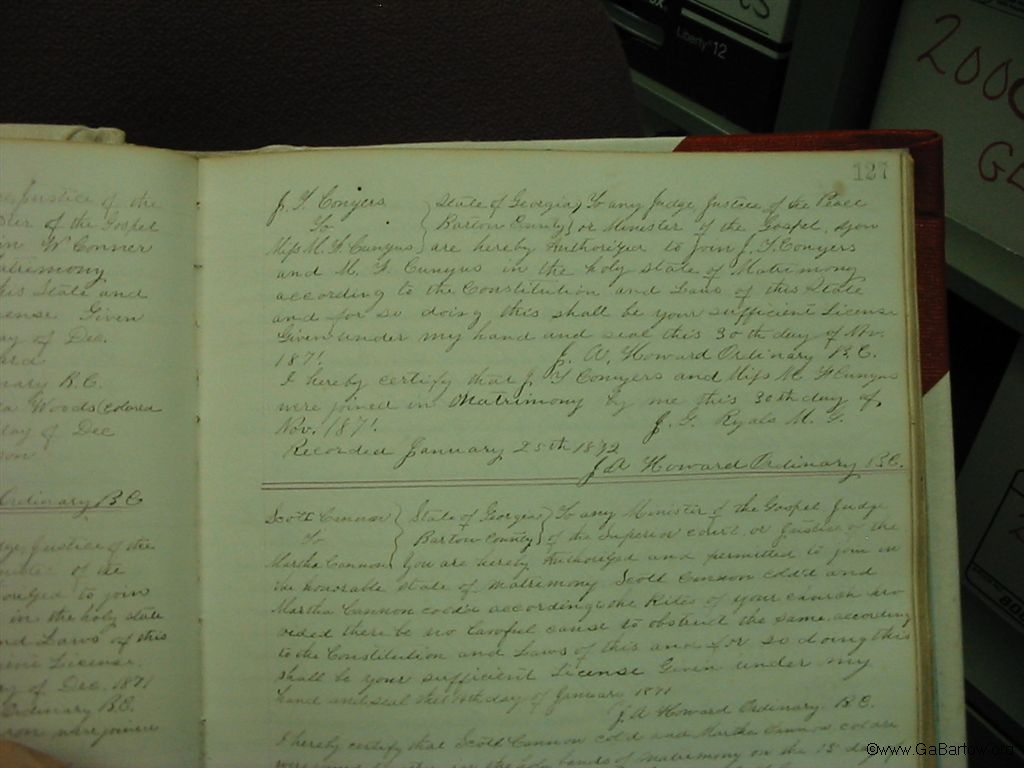 Liberty 12
200
GL
127
Justice of the
of the Gospel
W Conner
Matrimony
his State and
License Given
day of Dec.
nary B.C.
Woods (colored
day of Dec
Ordinary B C
Justice of the
of the
to join
in the holy state
and Laws of this
License.
of Dec. 1871
Ordinary B.C.
were joined
J. T. Conyers
To
Miss M. F. Cunyus
State of Georgia
Bartow County
To any Judge Justice of the Peace
or Minister of the Gospel, you
are hereby Authorized to join J. T. Conyers
and M. F. Cunyus in the holy state of Matrimony
according to the Constitution and Laws of this State
and for so doing this shall be your sufficient License
Given under my hand and seal this 30th day of Nov.
1871
J. A. Howard Ordinary B. C.
I hereby certify that J. T Conyers and Miss M F Cunyus
were joined in Matrimony by me this 30th day of
Nov. 1871
J. G. Ryals M. G.
Recorded January 25th 1872
J A Howard Ordinary B.C.
Scott Cannon
To
Martha Cannon
State of Georgia
Bartow County
To any Minister of the Gospel Judge
of the Superior court or Justice of the
You are hereby Authorized and permitted to join in
the honorable state of Matrimony Scott Cannon cold and
Martha Cannon cold according the Rites of your church pro
vided there be no lawful cause to obstruct the same according
to the Constitution and Laws of this and for so doing this
shall be your sufficient License Given under my
hand and seal this day of January 1871
J. A Howard Ordinary B. C.
I hereby certify that Scott Cannon cold and Martha Cannon col are
were in the holy bands of matrimony on the 15 day
©www.GaBartow.org